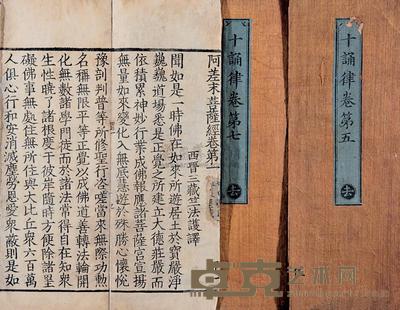 十誦律卷第五
去
十誦律卷第七
去
阿差末菩薩經卷第一
西晉三藏竺法護譯
聞如是一時佛在如來所遊居土於寶嚴淨
巍巍道場悉是正覺之所建立大德莊嚴而
依積累神妙行業成佛報應諸菩薩宮宣揚
無量如來變化入無底慧遊於殊勝心懷悅
豫剖判普等所修聖行咨嗟當來無際功勳
名稱無限平等正覺以成佛道善轉法輪開
化無數諸學門從而於諸法常得自在知衆
生性曉了諸根度于彼岸隨時方便除諸罣
礙佛事無處住無所住與大比丘衆六百萬
人俱心行和安消滅塵勞恩愛衆蔽則是如
卓克艺术网